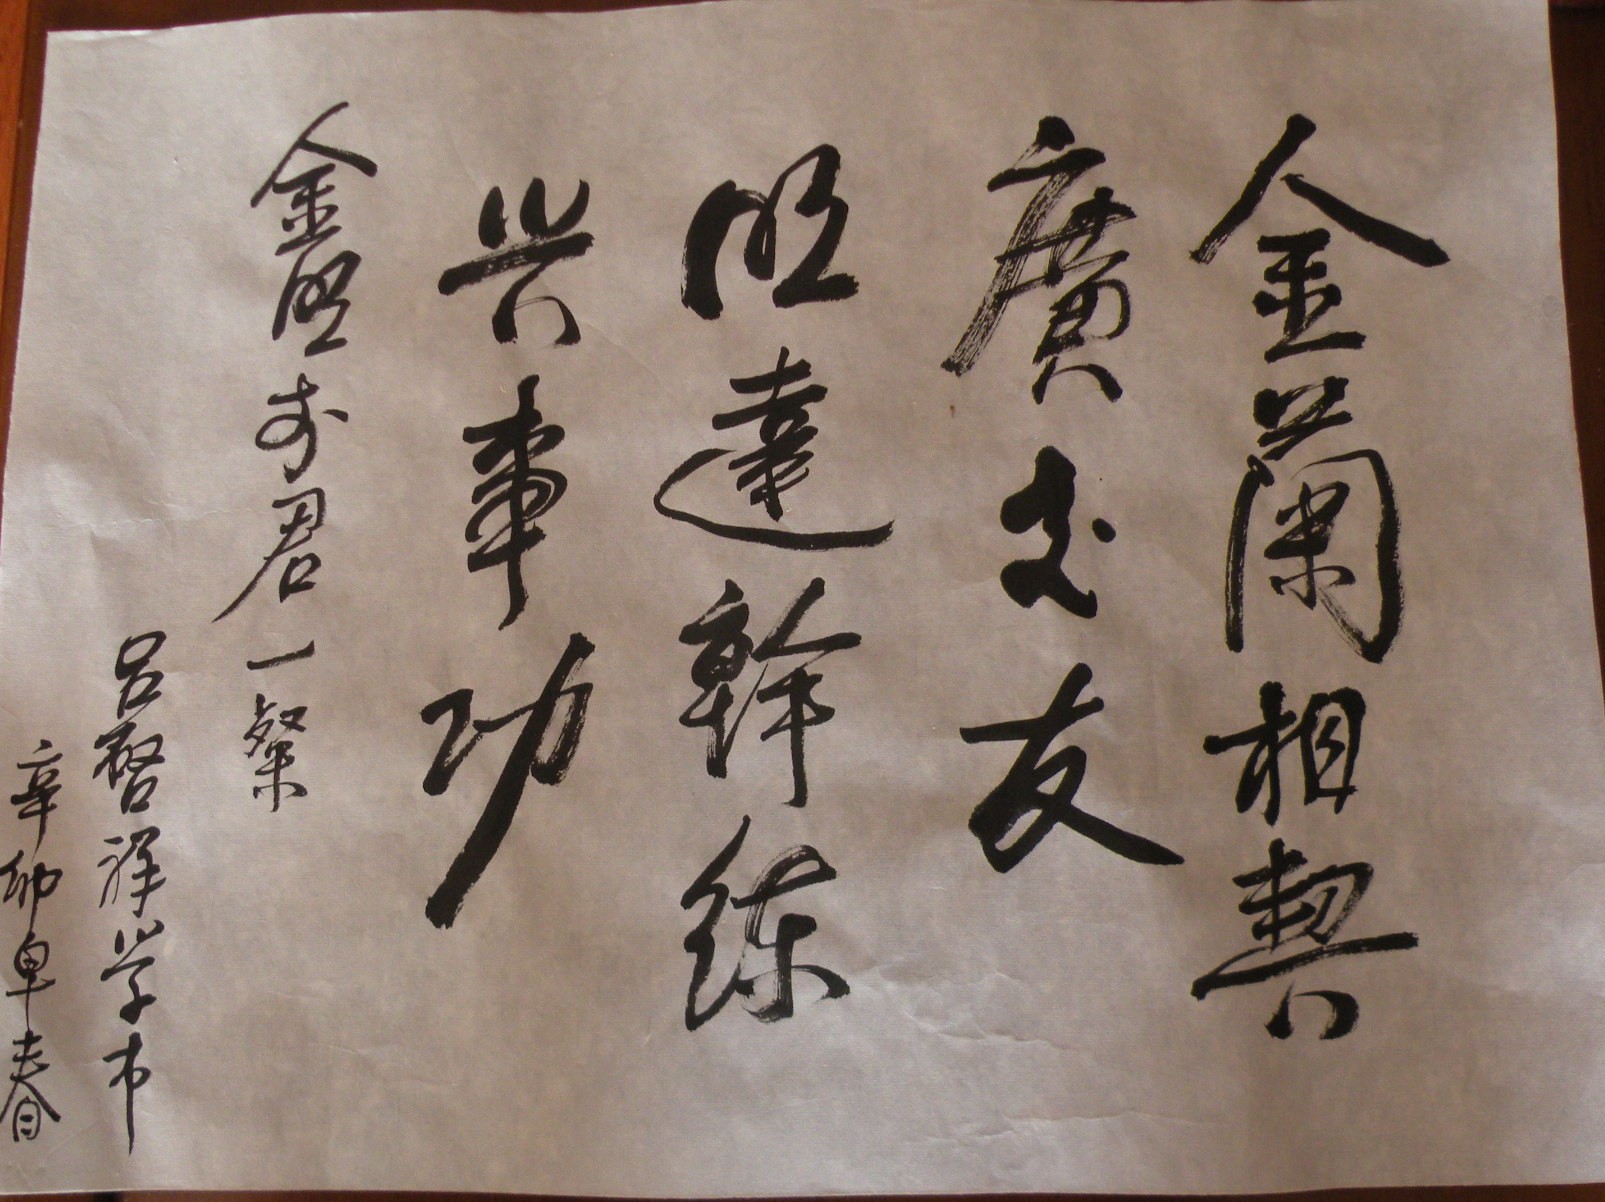 金蘭相契
廣交友
明達幹練
興事功
金明老君一粲
呂啓祥学书
辛卯早春